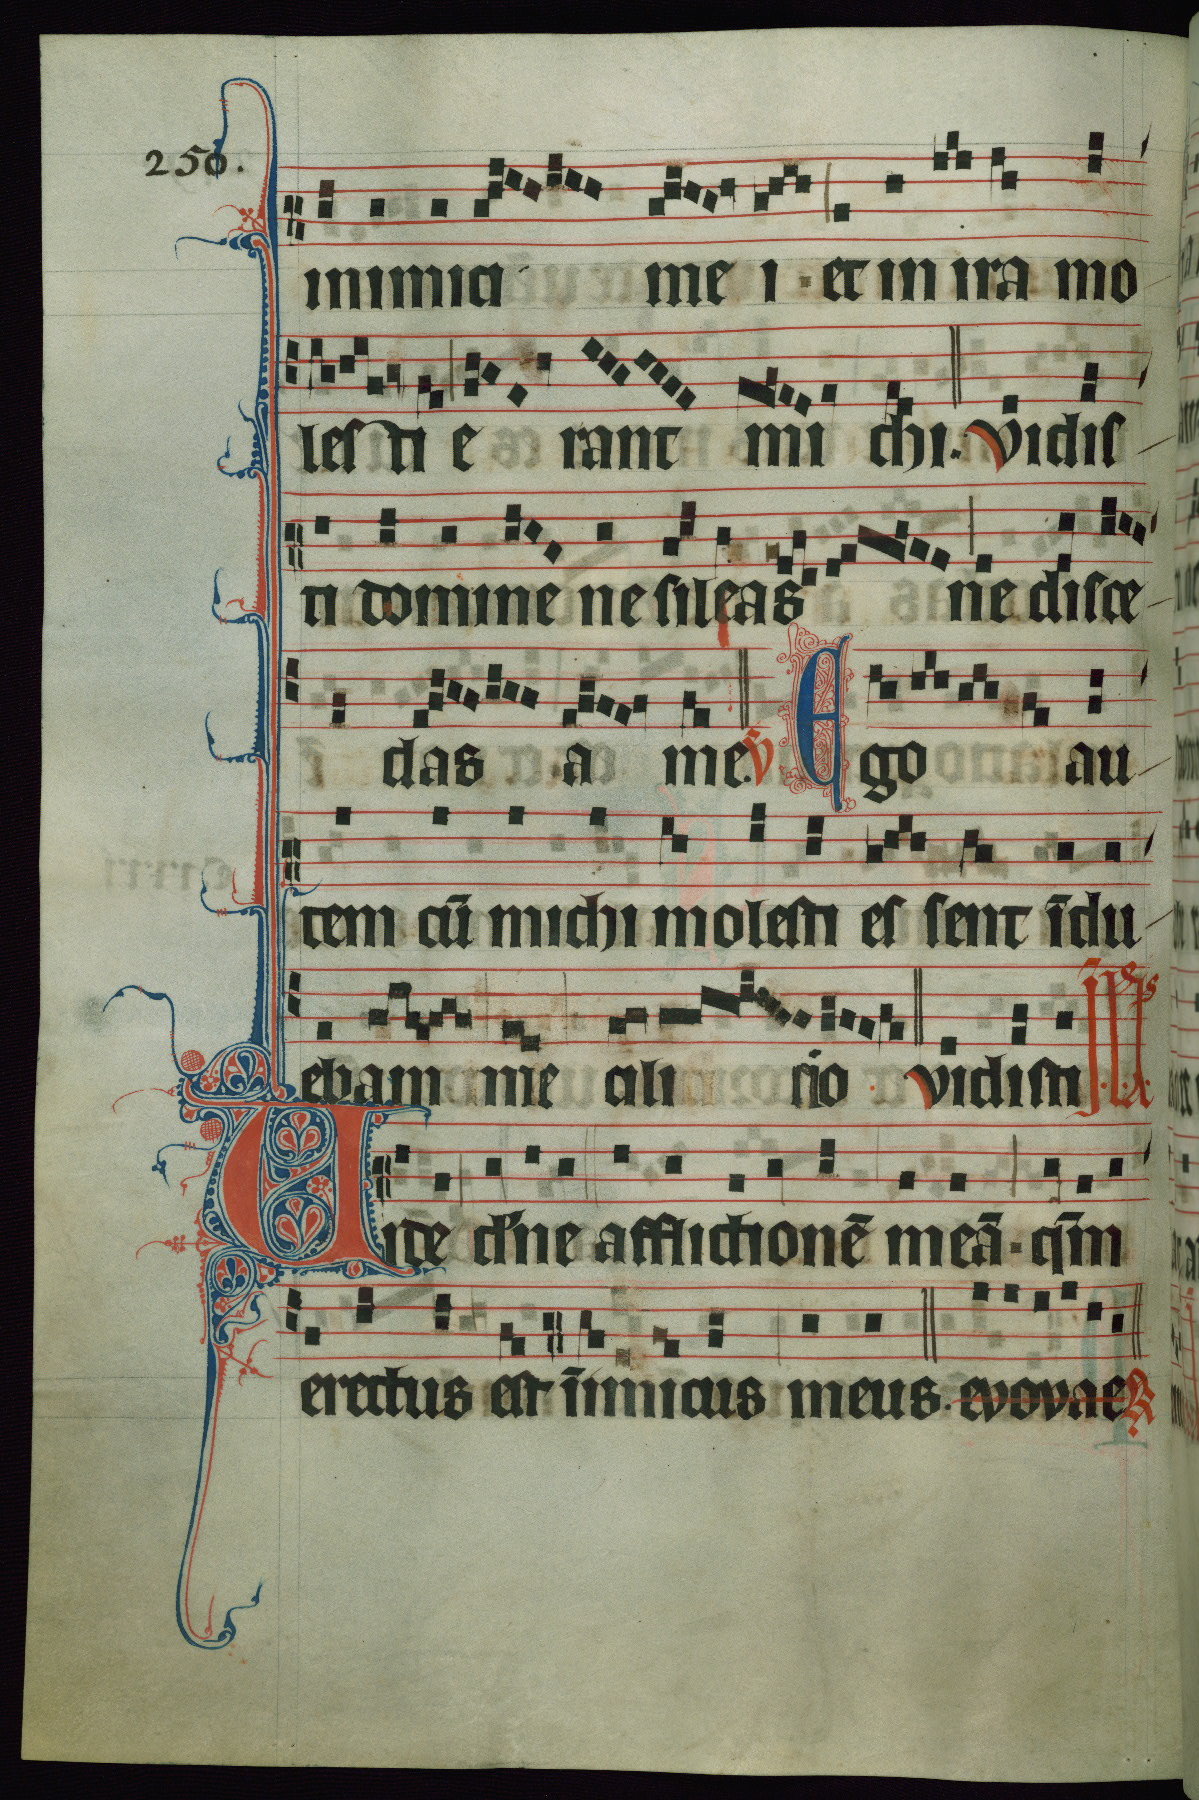 250.
inimici me i · et in ira mo
lesti e rant mi chi. vidis
ti domine ne sileas ne disce
das a me. V Ego au
tem cū michi molesti es sent īdu
ebam me cili cio · vidisti
Vide dn̄e afflictionē meā · qm̄
erectus est īnimicus meus. evovae R